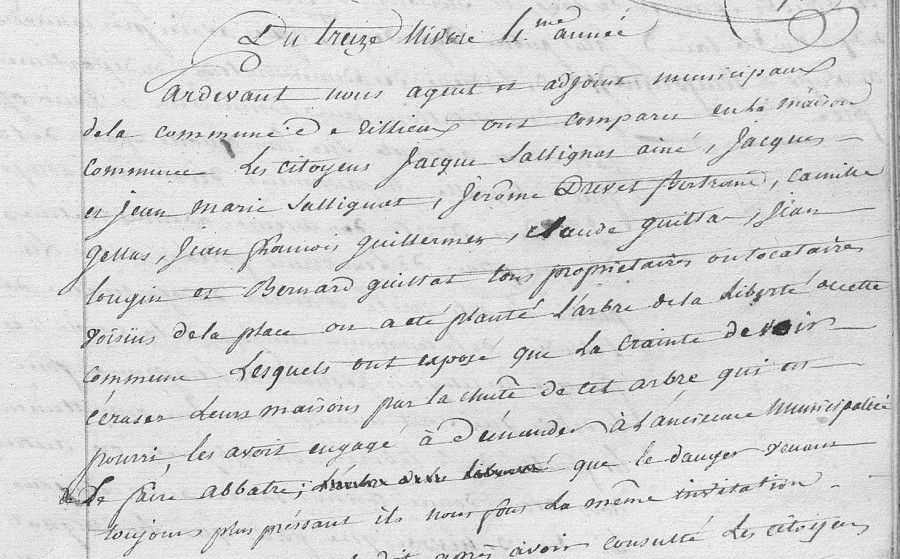 Du treize Nivose 4.me année
Ardevant nous agent et adjoint municipaux
dela commune de Villieux ont comparu en la maison
commune Les citoyens Jacque Saltignat ainé, Jacques
et Jean Marie Saltignat, Jérôme Drevet Bertrand, Camille
Gettas, Jean François Guillermet, Claude Guittat, Jean
Lougin et Bernard Guittat tous propriétaires ou locataires
voisins dela place ou a eté planté L'arbre dela Liberté de cette
commune Lesquels ont exposé que la crainte de voir
écraser Leurs maisons par la chute de cet arbre qui est
pourri les avoit engagé à demander à L'ancienne Municipalité
de Le faire abbatre; que le danger venant
toujours plus pressant ils nous font la même invitation
après avoir consulté Les citoyens